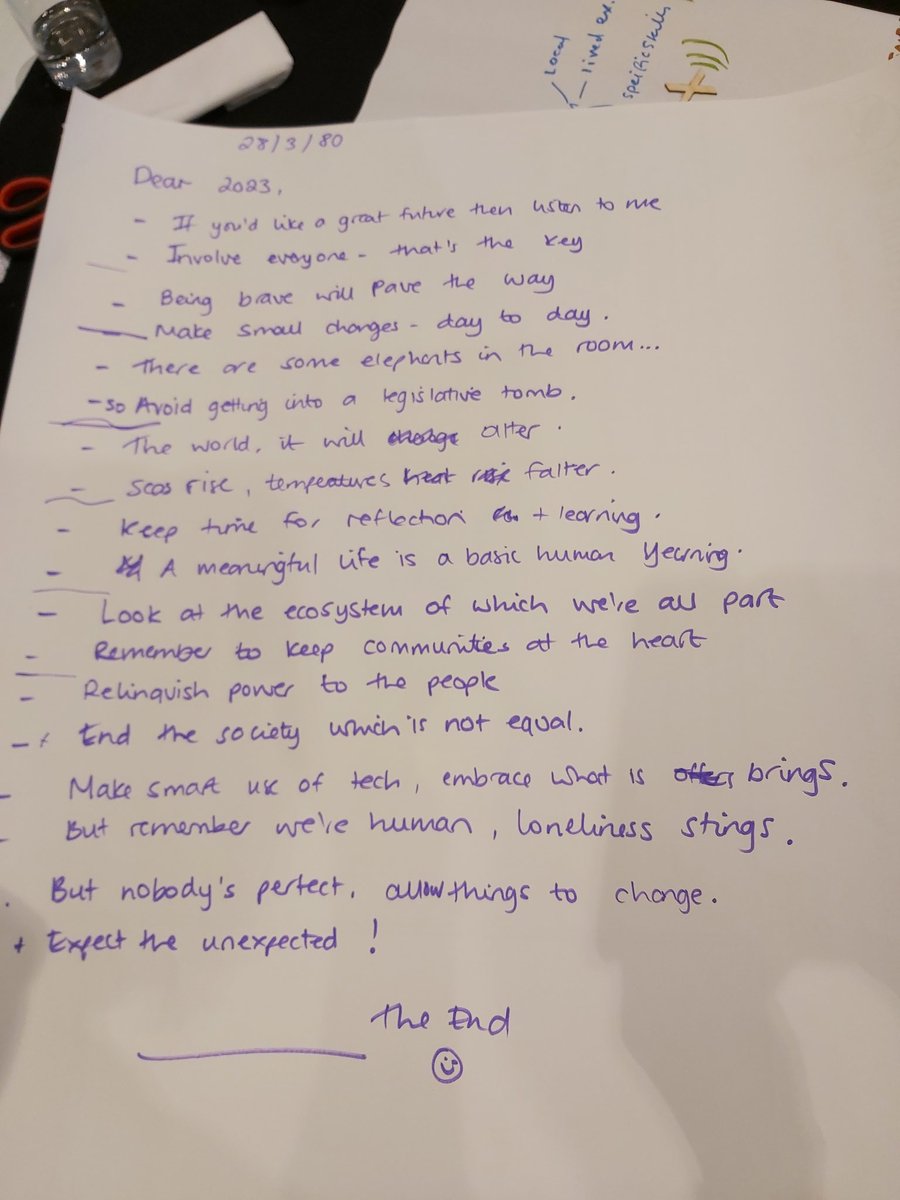 Local
- lived ex.
specific skills
28/3/80
Dear 2023,
- If you'd like a great future then listen to me
- Involve everyone - that's the key
- Being brave will pave the way
- Make small changes - day to day.
- There are some elephants in the room...
- so Avoid getting into a legislative tomb.
- The world, it will change alter.
- Seas rise, temperatures heat rise falter.
- Keep time for reflection + learning.
- A meaningful life is a basic human yearning.
- Look at the ecosystem of which we're all part
- Remember to keep communities at the heart
- Relinquish power to the people
- End the society which is not equal.
- Make smart use of tech, embrace what is offers brings.
- But remember we're human, loneliness stings.
. But nobody's perfect. allow things to change.
+ Expect the unexpected!
The End